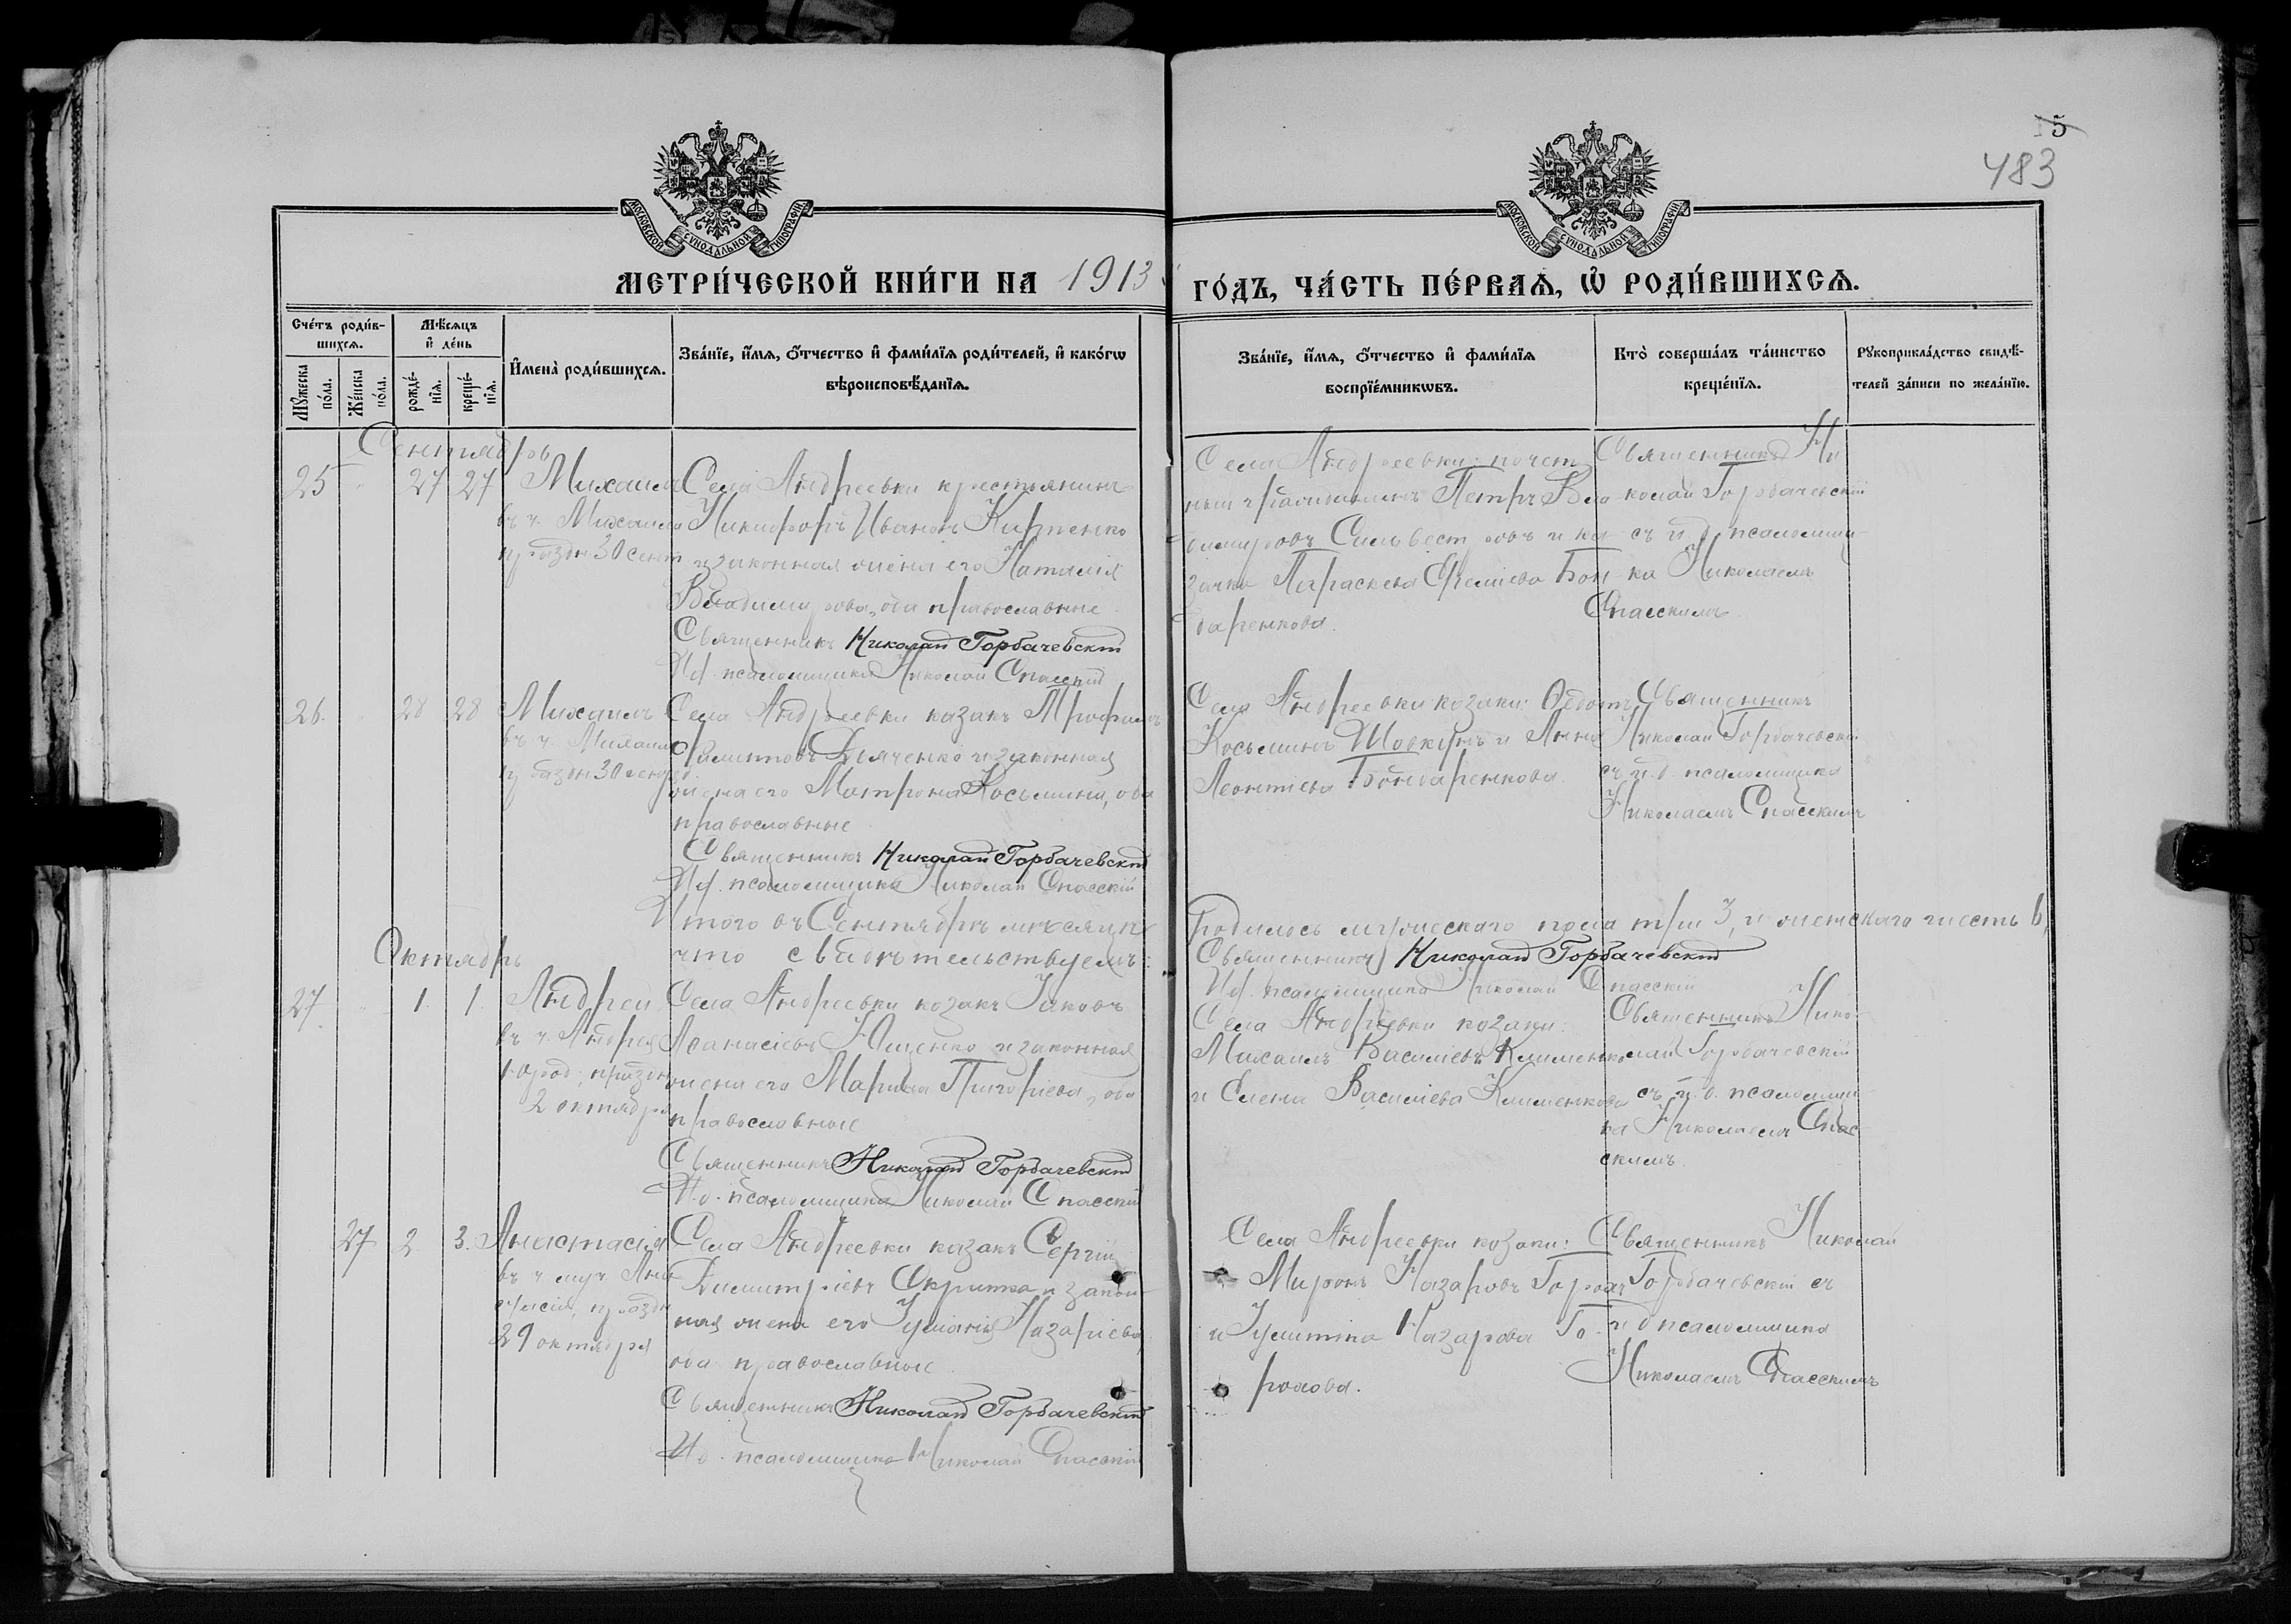 5
483
МОСКОВСКОЙ СѴНОДАЛЬНОЙ ТИПОГРАФІИ
МОСКОВСКОЙ СѴНОДАЛЬНОЙ ТИПОГРАФІИ
МЕТРИ́ЧЕСКОЙ КНИ́ГИ НА 1913 ГО́ДЪ, ЧА́СТЬ ПЕ́РВАѦ, Ѡ҆ РОДИ́ВШИХСѦ.
Сче́тъ роди́в-
шихсѧ.
Мꙋ́жеска по́ла.
Же́нска по́ла.
Мѣ́сѧцъ
и҆ де́нь
рожде́-
нїѧ.
креще́-
нїѧ.
И҆мена̀ роди́вшихсѧ.
Зва́нїе, и҆́мѧ, ѻ҆́тчество и҆ фами́лїѧ роди́телей, и҆ како́гѡ
вѣроисповѣ́данїѧ.
Зва́нїе, и҆́мѧ, ѻ҆́тчество и҆ фами́лїѧ
воспрїе́мникѡвъ.
Кто̀ соверша́лъ та́инство
креще́нїѧ.
Рꙋкоприкла́дство свидѣ́-
телей за́писи по жела́нїю.
Сентябрь
25 27 27 Михаилъ
въ ч. Михаила
празд. 30 сент.
Села Андреевки крестьянинъ
Никифоръ Ивановъ Кирпенко
и законная жена его Наталія
Владимирова, оба православные
Священникъ Николай Горбачевскій
И д. псаломщика Николай Спасскій
Села Андреевки: почет
ный гражданинъ Петръ Вла
димировъ Сильвестровъ и ка
зачка Параскева Бон
даренкова.
Священникъ Ни
колай Горбачевскій
съ и. д. псаломщи
ка Николаемъ
Спасскимъ
26. 28 28 Михаилъ
въ ч. Михаила
празд. 30 сент.
Села Андреевки казакъ Трофимъ
Дьяченко и законная
жена его Матрона Косьмина, оба
православные
Священникъ Николай Горбачевскій
И д. псаломщика Николай Спасскій
Села Андреевки козаки: Ѳедотъ
Косьминъ Шовкунъ и Анна
Леонтіева Бондаренкова.
Священникъ
Николай Горбачевскій
съ и. д. псаломщика
Николаемъ Спасскимъ
Итого въ Сентябрѣ мѣсяцѣ родилось мужескаго пола три 3, и женскаго шесть 6,
что свидѣтельствуемъ:
Священникъ Николай Горбачевскій
И д. псаломщика Николай Спасскій
Октябрь
27. 1. 1. Андрей
въ ч. Андрея
юрод., праздн.
2 октября
Села Андреевки козакъ Іаковъ
Аѳанасіевъ Ющенко и законная
жена его Марина Григоріева, оба
православные
Священникъ Николай Горбачевскій
И. д. псаломщика Николай Спасскій
Села Андреевки козаки:
Михаилъ Василіевъ Клименко
и Елена Василіева Клименкова
Священникъ Нико-
лай Горбачевскій
съ и. д. псаломщи
ка Николаемъ Спас
скимъ.
27 2 3. Анастасія
въ ч. муч. Ана
стасіи, праздн
29 октября
Села Андреевки казакъ Сергій
Димитріевъ Скрипка и закон-
ная жена его Іуліанія Назаріева,
оба православные.
Священникъ Николай Горбачевскій
И д. псаломщика Николай Спасскій
Села Андреевки козаки:
Миронъ Назаровъ
и Іустина Назарова Го-
рохова.
Священникъ Николай
Горбачевскій съ
и д псаломщика
Николаемъ Спасскимъ